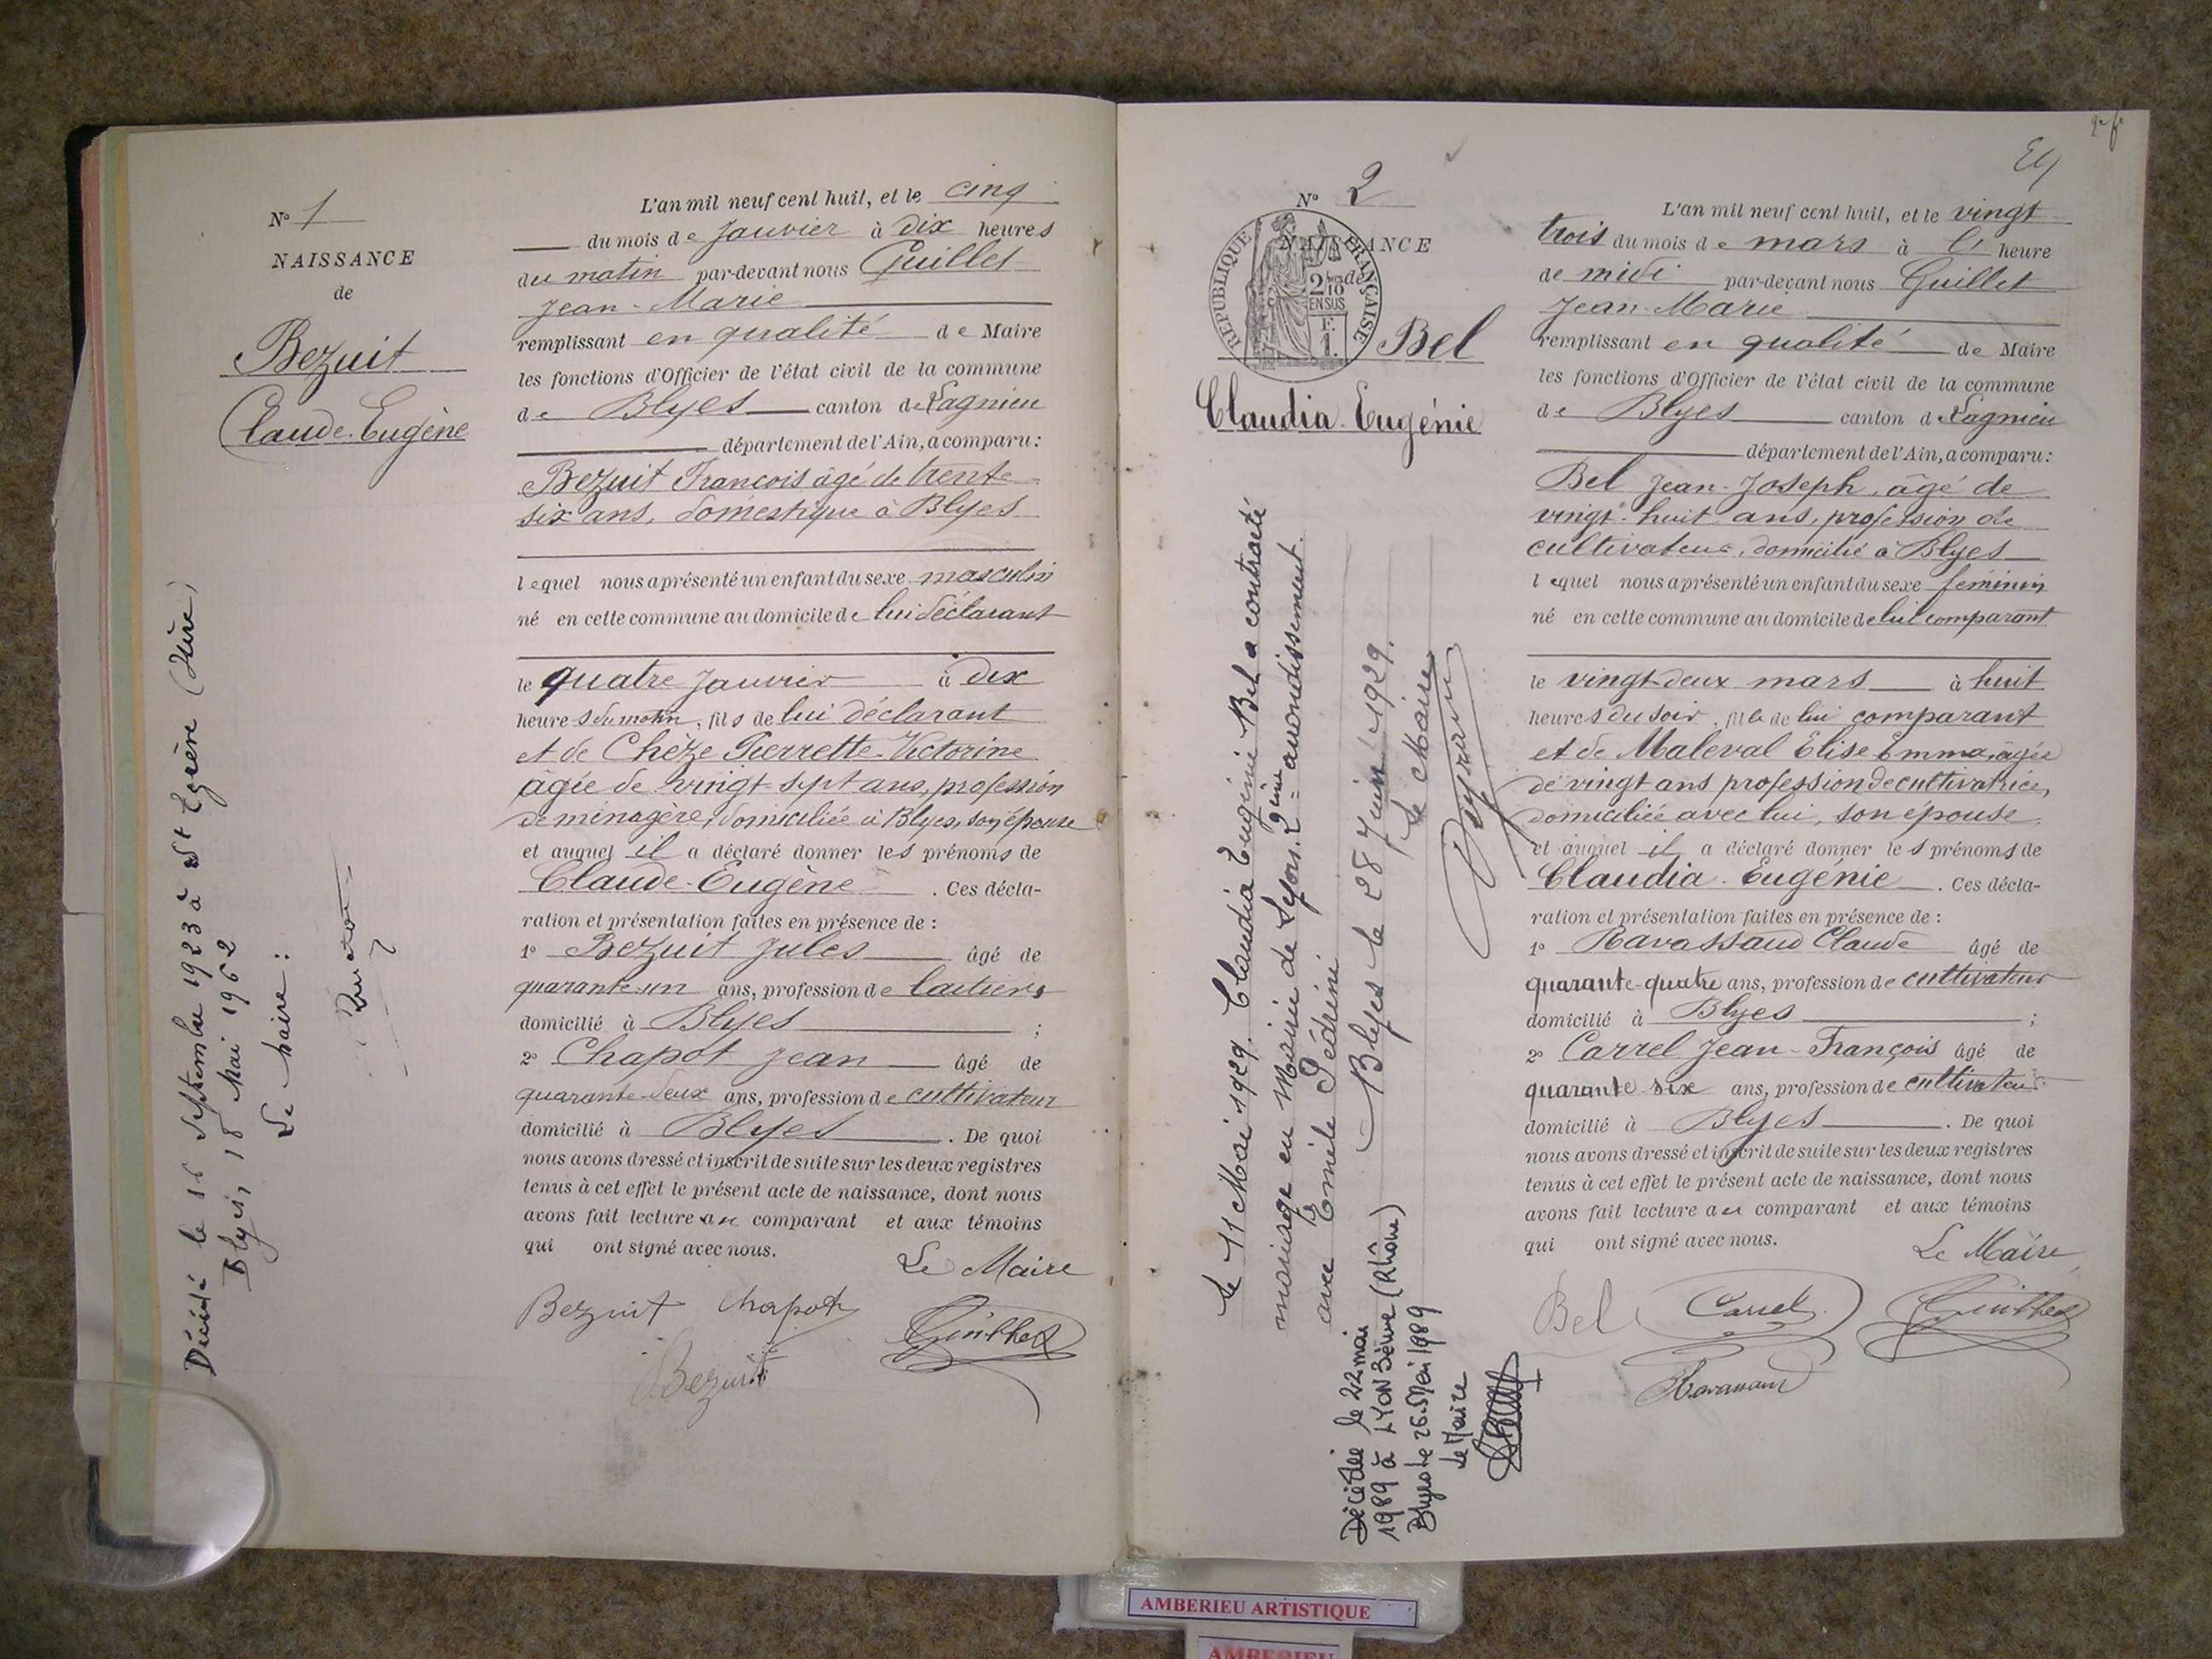 N° 1
NAISSANCE
de
Bezuit
Claude-Eugène
L'an mil neuf cent huit, et le cinq
du mois de Janvier à dix heures
du matin par-devant nous Guillet
Jean-Marie
remplissant en qualité de Maire
les fonctions d'Officier de l'état civil de la commune
de Blyes canton de Lagnieu
département de l'Ain, a comparu :
Bezuit François âgé de trente
six ans, domestique à Blyes
lequel nous a présenté un enfant du sexe masculin
né en cette commune au domicile de lui déclarant
le quatre Janvier à dix
heures du matin, fils de lui déclarant
et de Chèze Pierrette-Victorine
âgée de vingt-sept ans, profession
de ménagère, domiciliée à Blyes, son épouse
et auquel il a déclaré donner les prénoms de
Claude-Eugène. Ces décla-
ration et présentation faites en présence de :
1° Bezuit Jules âgé de
quarante-un ans, profession de laitiers
domicilié à Blyes ;
2° Chapot Jean âgé de
quarante-deux ans, profession de cultivateur
domicilié à Blyes. De quoi
nous avons dressé et inscrit de suite sur les deux registres
tenus à cet effet le présent acte de naissance, dont nous
avons fait lecture au comparant et aux témoins
qui ont signé avec nous.
Le Maire
Bezuit Chapot
Bezuit
Décédé le 16 Septembre 1923 à St (Isère)
Blyes, 18 Mai 1962
Le Maire :
2
N° 2
NAISSANCE
de
RÉPUBLIQUE FRANÇAISE
2/10
EN SUS
F.
1.
Bel
Claudia-Eugénie
L'an mil neuf cent huit, et le vingt
trois du mois de mars à l' heure
de midi par-devant nous Guillet
Jean-Marie
remplissant en qualité de Maire
les fonctions d'Officier de l'état civil de la commune
de Blyes canton de Lagnieu
département de l'Ain, a comparu :
Bel Jean-Joseph, âgé de
vingt-huit ans, profession de
cultivateur, domicilié à Blyes
lequel nous a présenté un enfant du sexe féminin
né en cette commune au domicile de lui comparant
le vingt-deux mars à huit
heures du soir, fille de lui comparant
et de Maleval Elise Emma, âgée
de vingt ans profession de cultivatrice,
domiciliée avec lui, son épouse
et auquel il a déclaré donner les prénoms de
Claudia-Eugénie. Ces décla-
ration et présentation faites en présence de :
1° Ravassaud Claude âgé de
quarante-quatre ans, profession de cultivateur
domicilié à Blyes ;
2° Carrel Jean-François âgé de
quarante six ans, profession de cultivateur
domicilié à Blyes. De quoi
nous avons dressé et inscrit de suite sur les deux registres
tenus à cet effet le présent acte de naissance, dont nous
avons fait lecture au comparant et aux témoins
qui ont signé avec nous.
Le Maire
Bel Carrel
Le 11 Mai 1929. Claudia Eugénie Bel a contracté
mariage en Mairie de Lyon. 2ème arrondissement.
avec Emile Pédrini
Blyes le 28 Juin 1929.
Le Maire
Peyraud
Décédée le 22 mai
1989 à LYON 3ème (Rhône)
Blyes le 26 Mai 1989
le Maire
AMBERIEU ARTISTIQUE
AMBERIEU